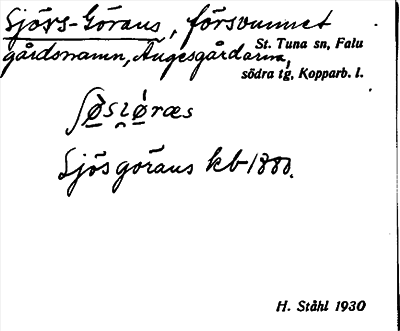 Sjörs-Görans, försvunnet
St. Tuna sn, Falu
gårdsnamn, Ängesgårdarna,
södra tg, Kopparb. l.
ʃø̀sɩǿræs
Sjösgörans kb 1880.
H. Ståhl 1930